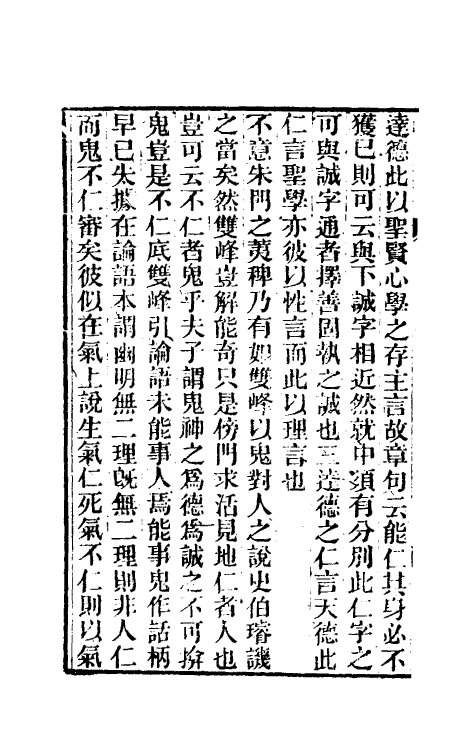 達德此以聖賢心學之存主言故章句云能仁其身必不
獲已則可云與下誠字相近然就中須有分別此仁字之
可與誠字通者擇善固執之誠也三達德之仁言天德此
仁言聖學亦彼以性言而此以理言也
不意朱門之荑稗乃有如雙峰以鬼對人之說史伯璿譏
之當矣然雙峰豈解能奇只是傍門求活見地仁者人也
豈可云不仁者鬼乎夫子謂鬼神之為德為誠之不可揜
鬼豈是不仁底雙峰引論語未能事人焉能事鬼作話柄
早已失據在論語本謂幽明無二理旣無二理則非人仁
而鬼不仁審矣彼似在氣上說生氣仁死氣不仁則以氣